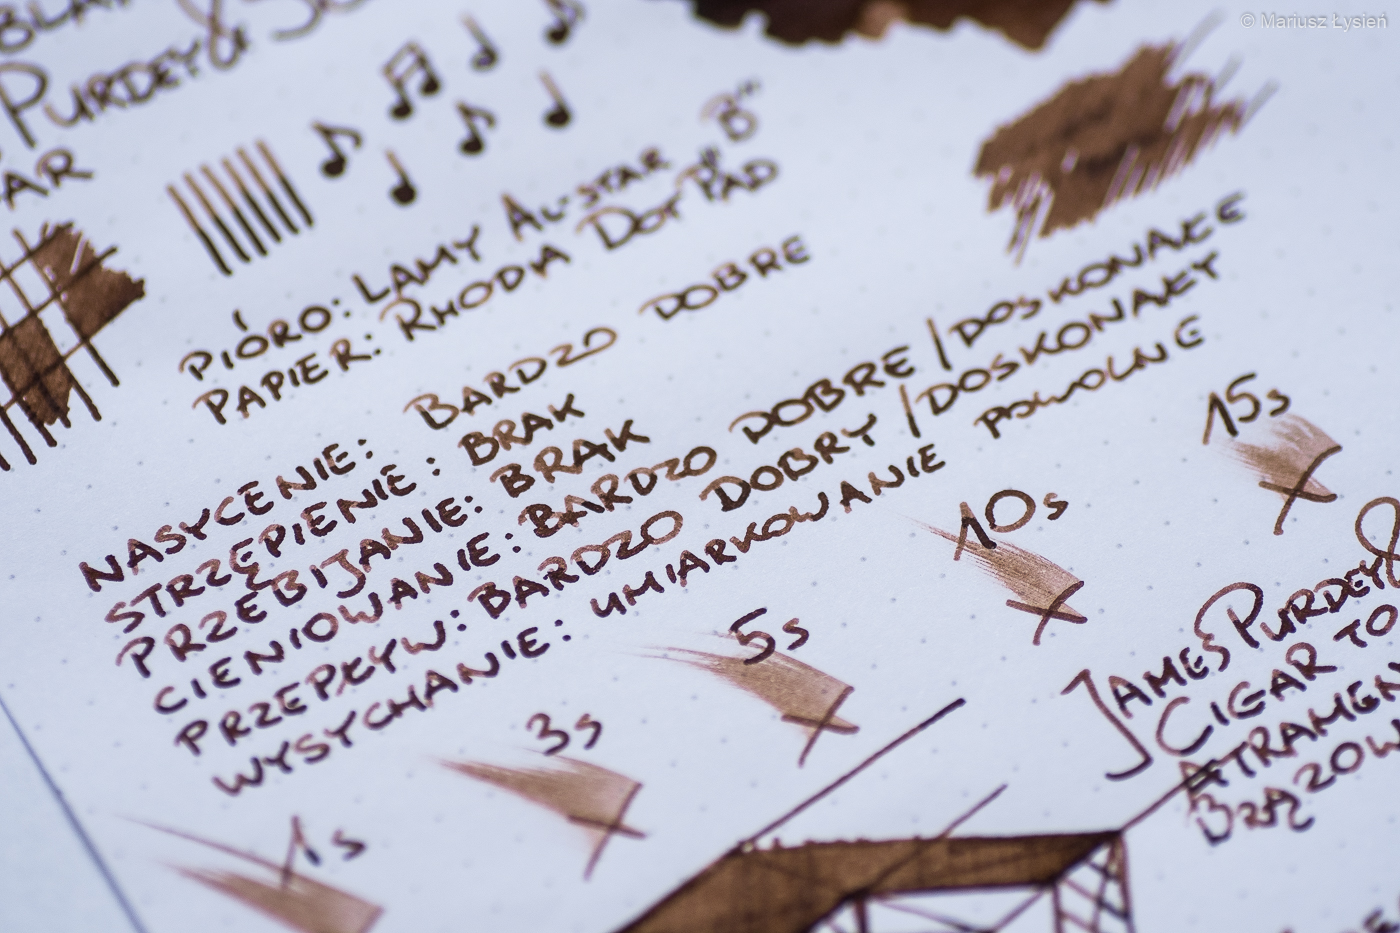 © Mariusz Łysień
PURDEY &
PIÓRO: LAMY AL-STAR "B"
PAPIER: RHODIA DOT PAD
NASYCENIE: BARDZO DOBRE
STRZĘPIENIE: BRAK
PRZEBIJANIE: BRAK
CIENIOWANIE: BARDZO DOBRE / DOSKONAŁE
PRZEPŁYW: BARDZO DOBRY / DOSKONAŁY
WYSYCHANIE: UMIARKOWANIE POWOLNE
1s
3s
5s
10s
15s
JAMES PURDEY &
CIGAR TO